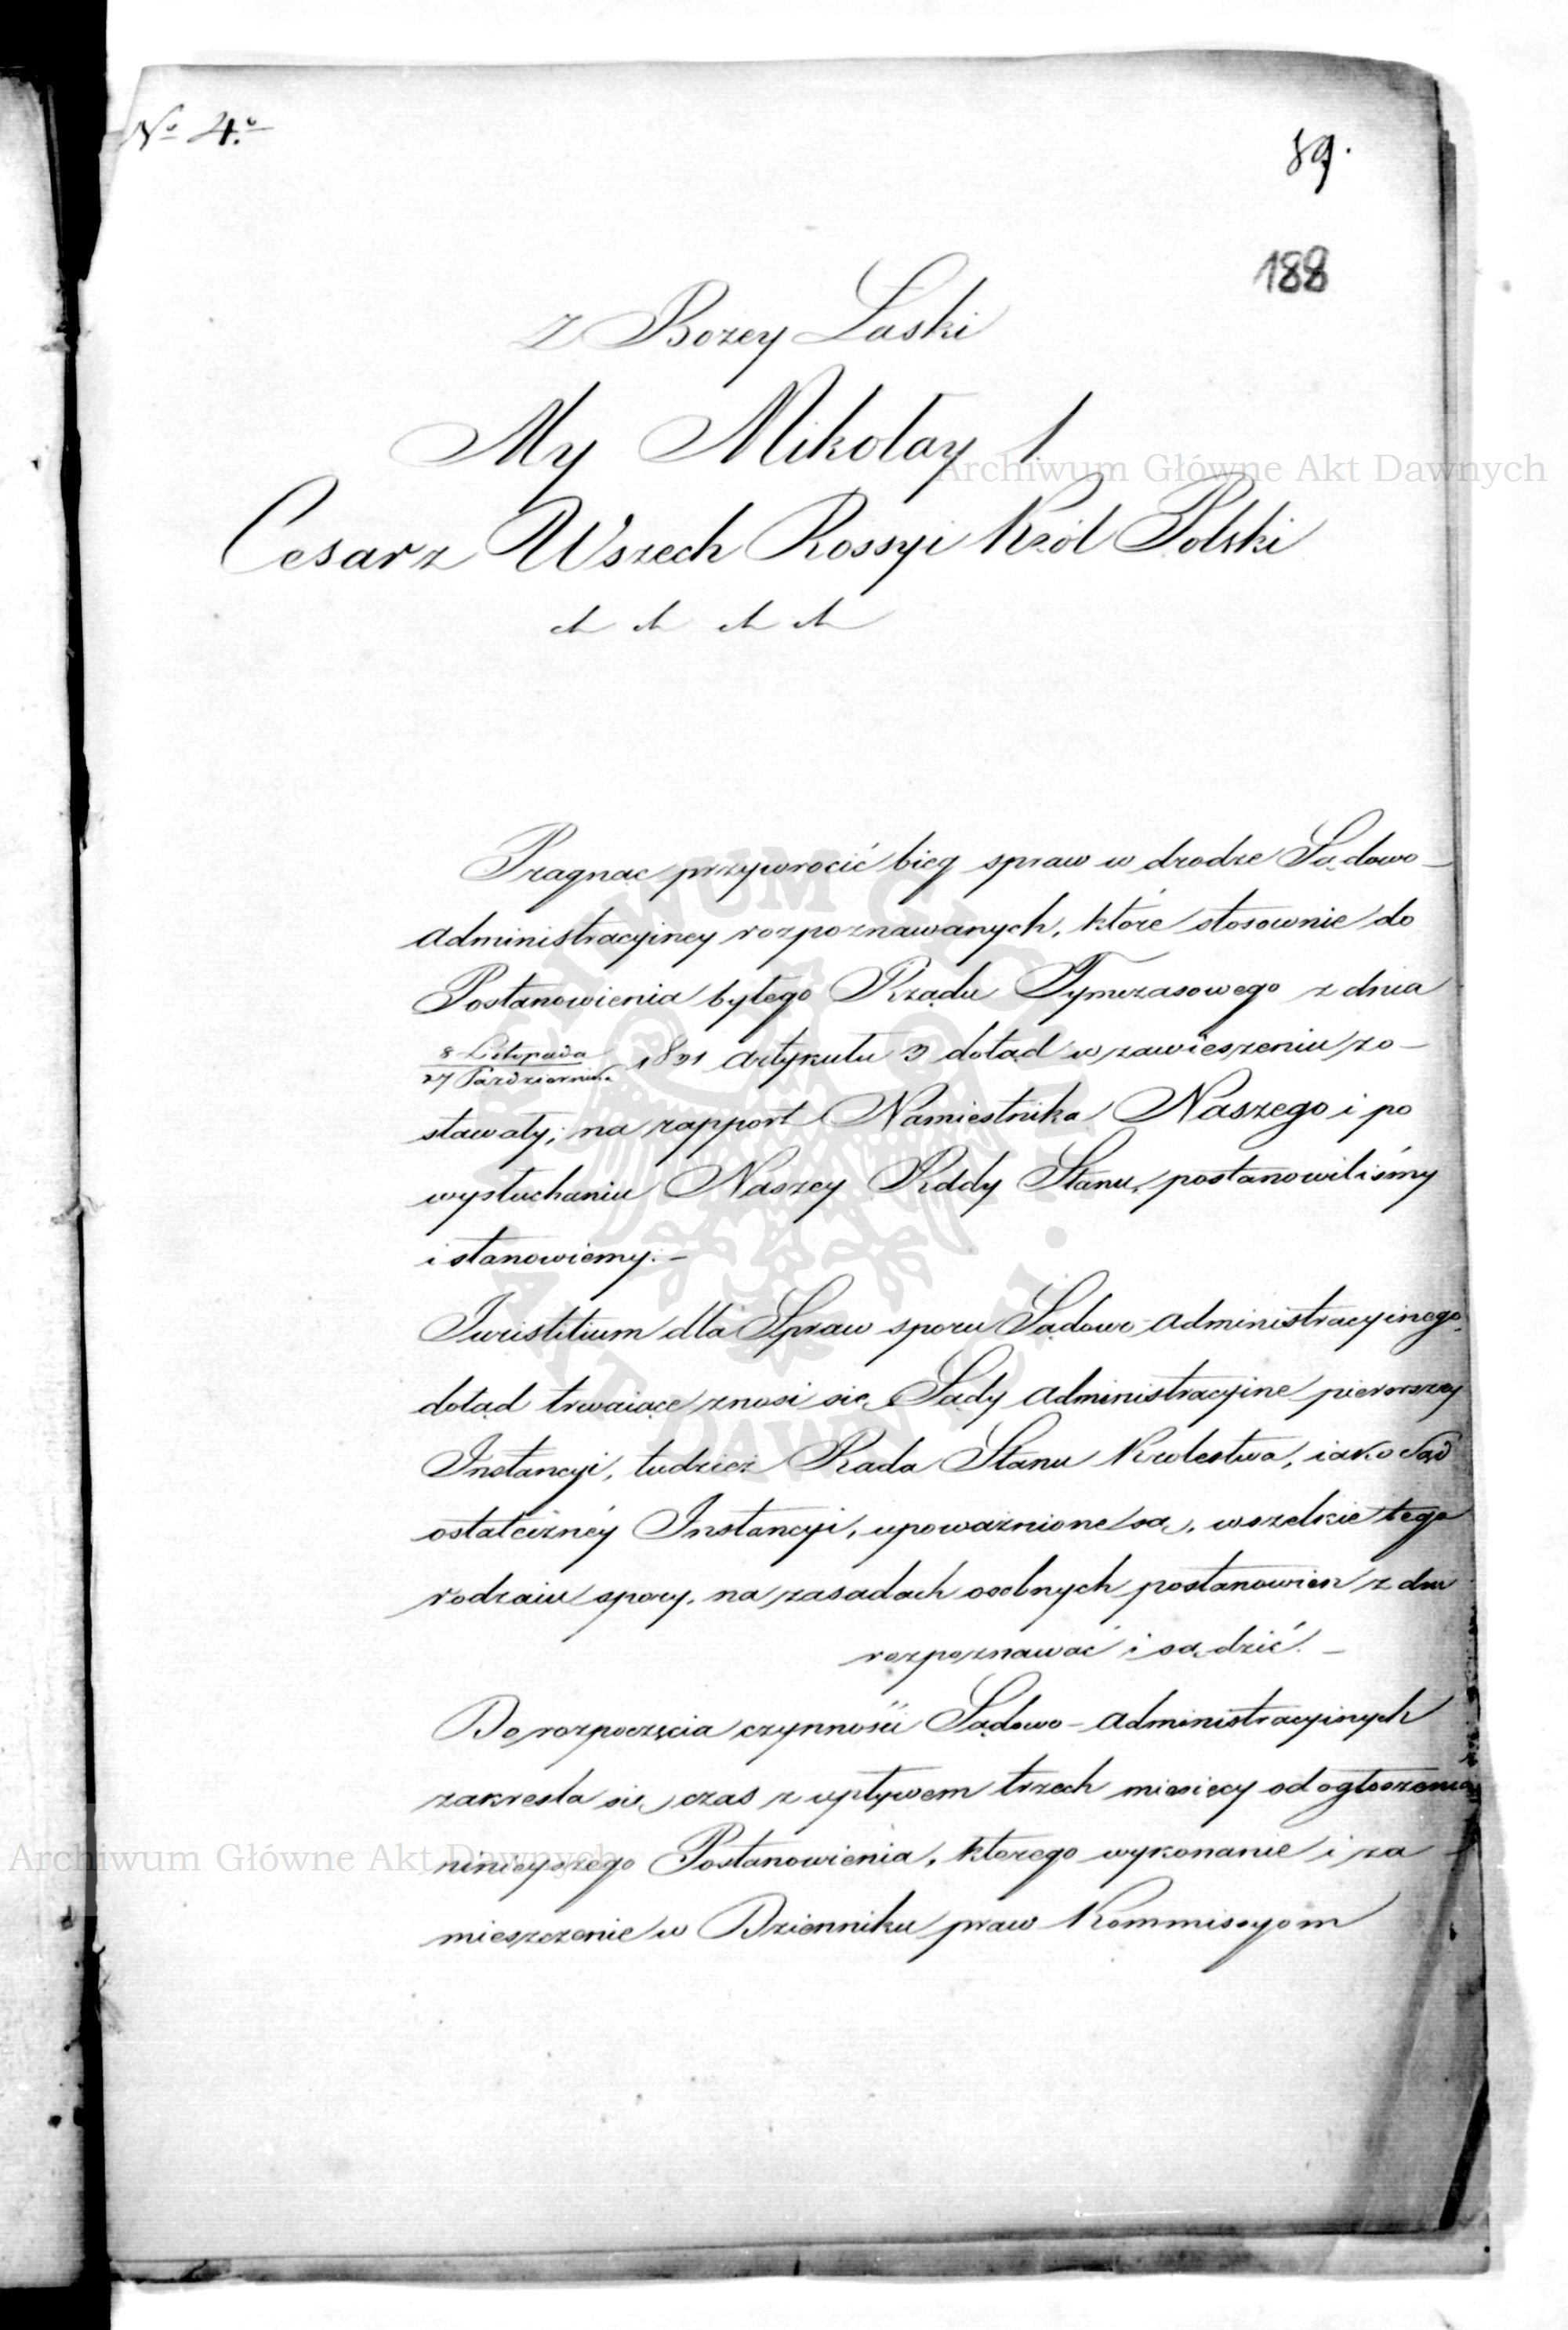 No 4o
89.
188
Z Bożey Łaski
My Mikołay I
Cesarz Wszech Rossyi Król Polski
Pragnąc przywrocić bieg spraw w drodze Sądowo-
administracyiney rozpoznawanych, które stosownie do
Postanowienia byłego Rządu Tymczasowego z dnia
8 Listopada
27 Października 1831 artykułu 3 dotąd w zawieszeniu zo-
stawały; na rapport Namiestnika Naszego i po
wysłuchaniu Naszey Rady Stanu, postanowiliśmy
i stanowiemy: -
Iuristitium dla Spraw sporu Sądowo-administracyinego
dotąd trwaiące znosi się, Sądy administracyine pierwszey
Instancyi, tudzież Rada Stanu Krolestwa, iako Sąd
ostateczney Instancyi, upoważnione są, wszelkie tego
rodzaiu spory, na zasadach osobnych postanowien z dnia
rozpoznawać i sądzić. -
Do rozpoczęcia czynności Sądowo-administracyinych
zakresla się czas z upływem trzech miesięcy od ogłoszenia
ninieyszego Postanowienia, ktorego wykonanie i za
mieszczenie w Dzienniku praw Kommissyom
Archiwum Główne Akt Dawnych
Archiwum Główne Akt Dawnych
ARCHIWUM GŁÓWNE AKT DAWNYCH